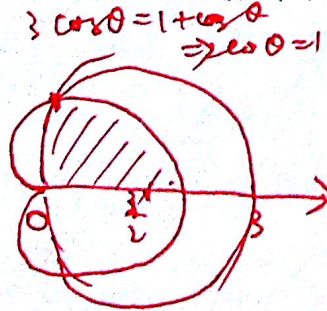 3 cosθ = 1 + cosθ
⇒ 2cosθ = 1
O
3
2
3